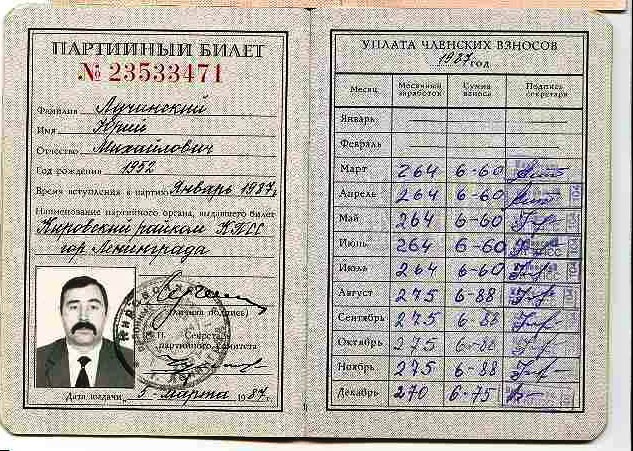 ПАРТИЙНЫЙ БИЛЕТ
№ 23533471
Фамилия Лучинский
Имя Юрий
Отчество Михайлович
Год рождения 1952
Время вступления в партию Январь 1987г.
Наименование партийного органа, выдавшего билет
Кировский райком КПСС
гор. Ленинграда
(личная подпись)
Секретарь
партийного комитета
Дата выдачи 5 марта 1987г.
УПЛАТА ЧЛЕНСКИХ ВЗНОСОВ
1987 год
Месяц Месячный заработок Сумма взноса Подпись секретаря
Январь
Февраль
Март 264 6-60
Апрель 264 6-60
Май 264 6-60
Июнь 264 6-60
Июль 264 6-60
Август 275 6-88
Сентябрь 275 6-88
Октябрь 275 6-88
Ноябрь 275 6-88
Декабрь 270 6-75